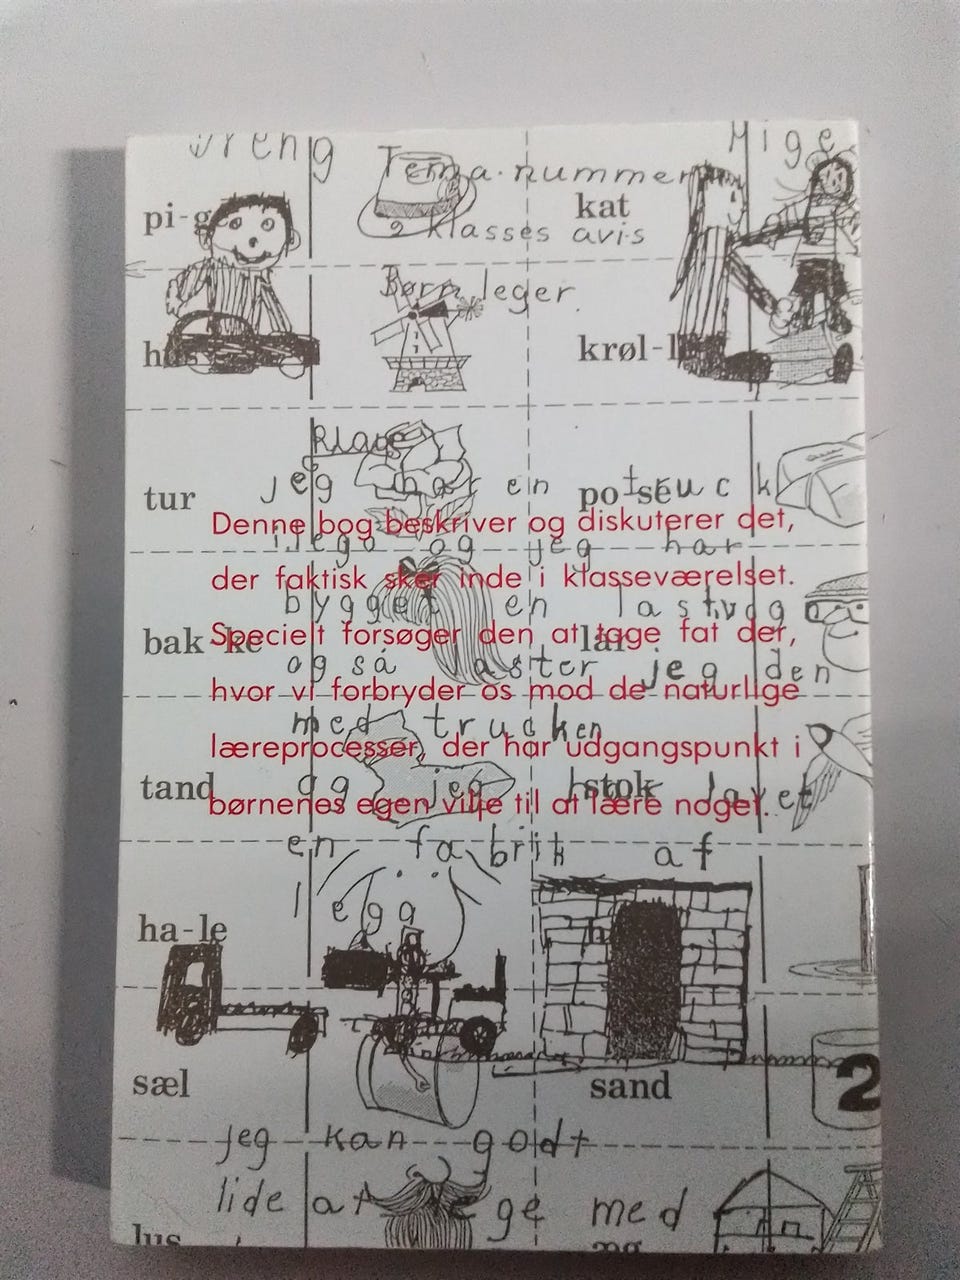 Dreng
Pige
Tema-nummer
pi-ge
kat
2 klasses avis
Børn leger
krøl-l
Klaus
jeg har en truck
tur
po
se
Denne bog beskriver og diskuterer det,
i lego og jeg har
der faktisk sker inde i klasseværelset.
bygget en lastvog
Specielt forsøger den at tage fat der,
bak-ke
også laster jeg den
hvor vi forbryder os mod de naturlige
med trucken
læreprocesser, der har udgangspunkt i
tand
og jeg har lavet
stok
børnenes egen vilje til at lære noget.
en fabrik af
lego
ha-le
sæl
sand
2
jeg kan godt
lide at lege med
lus